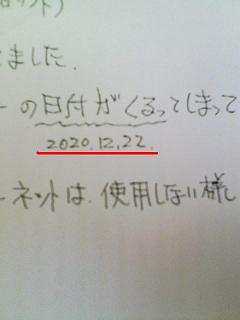 ロット)
ました.
ーの日付がくるってしまって
2020.12.22.
ーネットは、使用しない様